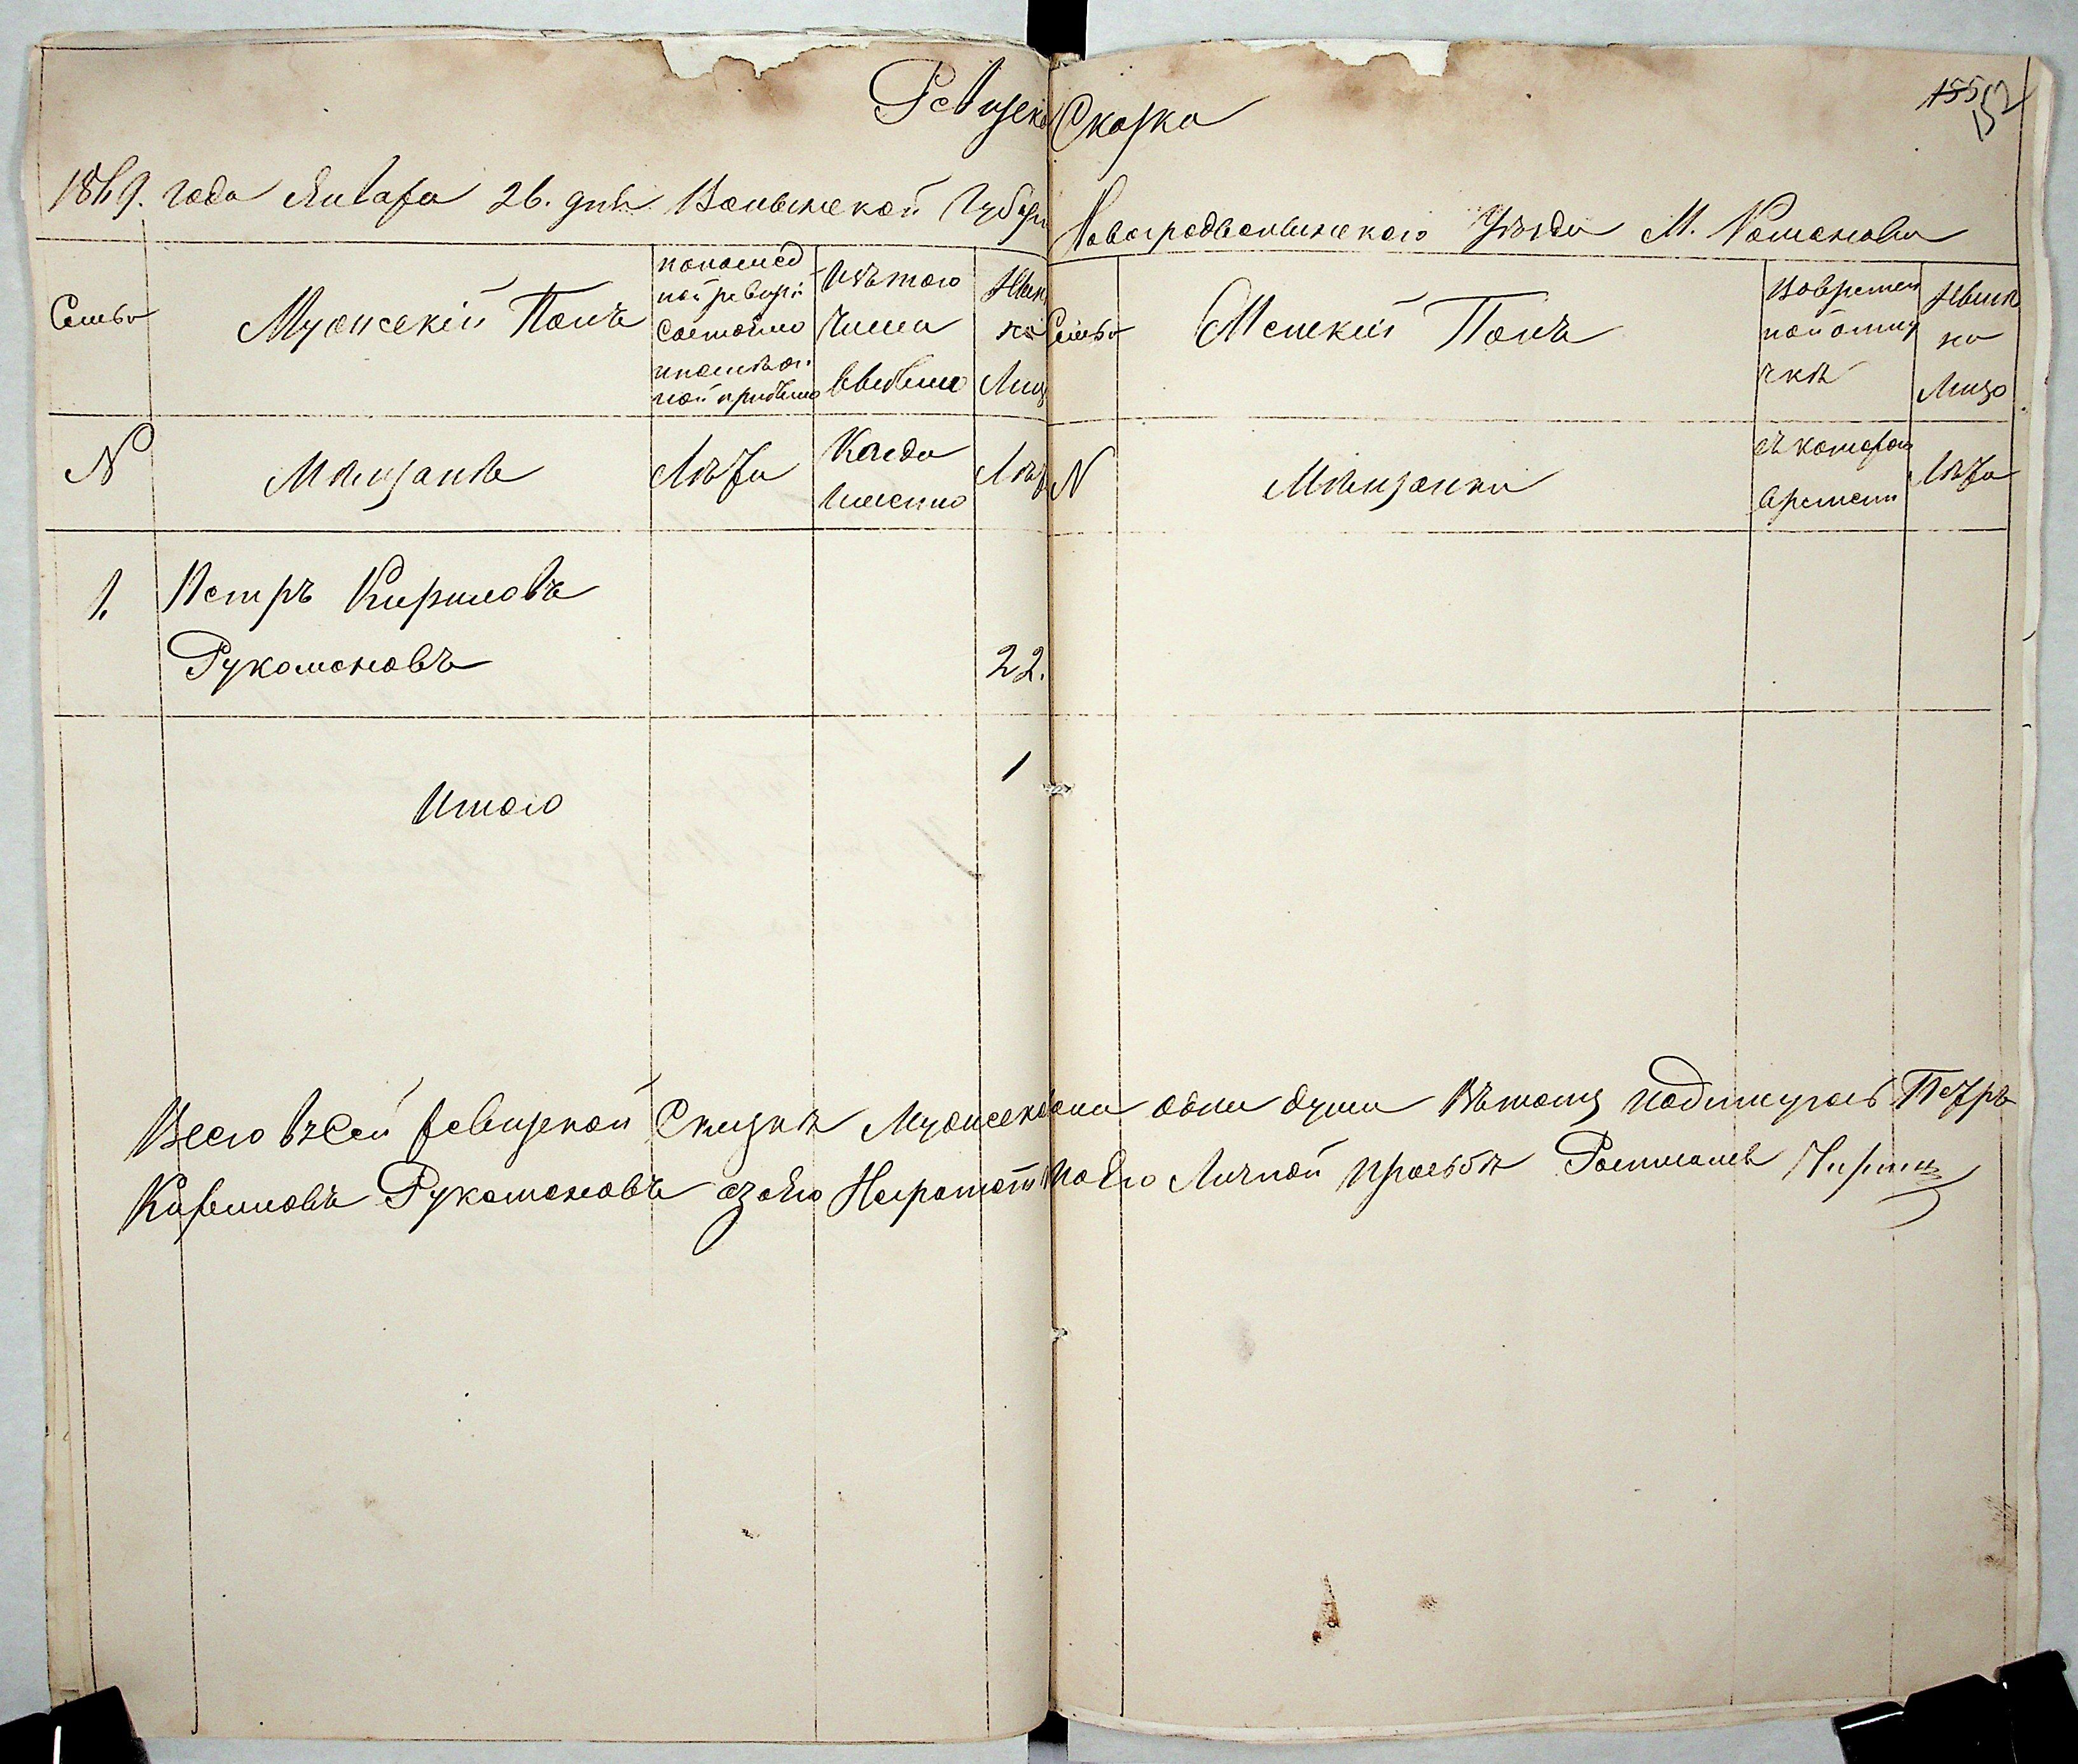 Ревизска Сказка
155 152
1869. года Января 26. дня Волынской Губер Новоградволынского Уѣзда М. Романова
Семья
Мужескій Полъ
попослед
ной ревизіи
Состояло
ипослѣ он
ной прибыло
Изътого
числа
выбыло
Нын
на
Лиц
Семья
Женский Полъ
Вовремен
ной отлу
чкѣ
Нынѣ
на
Лицо
N
Мѣщанѣ
Лѣта
Когда
именно
Лѣт
N
Мѣщанки
съ котораго
времени
Лѣта
1. Петръ Кириловъ
Рукомоновъ 22.
Итого 1
Всего въсей ревизской Сказкѣ Мужеска пола одна душа Вътомъ подписуюсь Петръ
Кириловъ Рукомоновъ азаего Неграмотн поЕго Личной просьбѣ Росписался